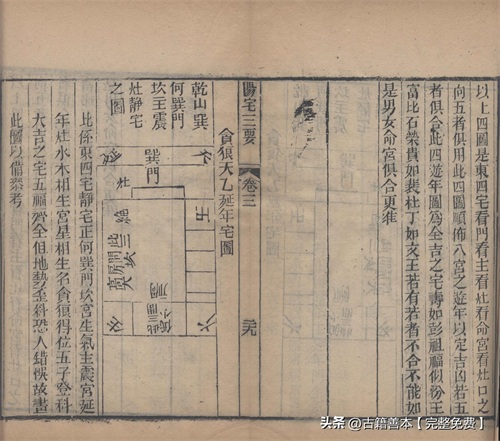 以上四圖東四宅看門看主看灶看命宮看灶口之
向五者俱用此四圖順佈八宮之遊年以定吉凶若五
者俱合此四遊年圖為全吉之宅壽如彭祖福似汾王
富比石崇貴如裴杜丁如文王若有若者不合不能如
是男女命宮俱合更準
陽宅三要
卷三
三九
貪狼天乙延年宅圖
乾山巽
何巽門
坎主震
灶靜宅
之圖
巽門
灶
主
此係東四宅靜宅正何巽門坎宮生氣主震宮延
年灶水木相生宮星相生名貪狼得位五子登科
大吉之宅五福齊全但地勢歪斜恐人錯悞故畫
此圖以備叅考
头条 @古籍善本【完整免费】